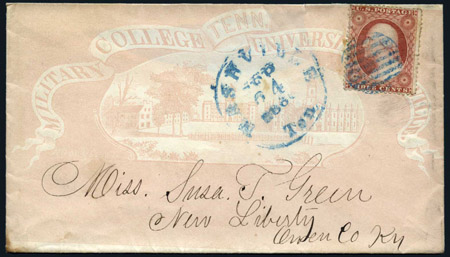 MILITARY COLLEGE TENN. UNIVERSI
U.S. POSTAGE
THREE CENTS
NASHVILLE Ten.
FEB
24
Miss. Susa. T. Green
New Liberty
Owen Co Ky